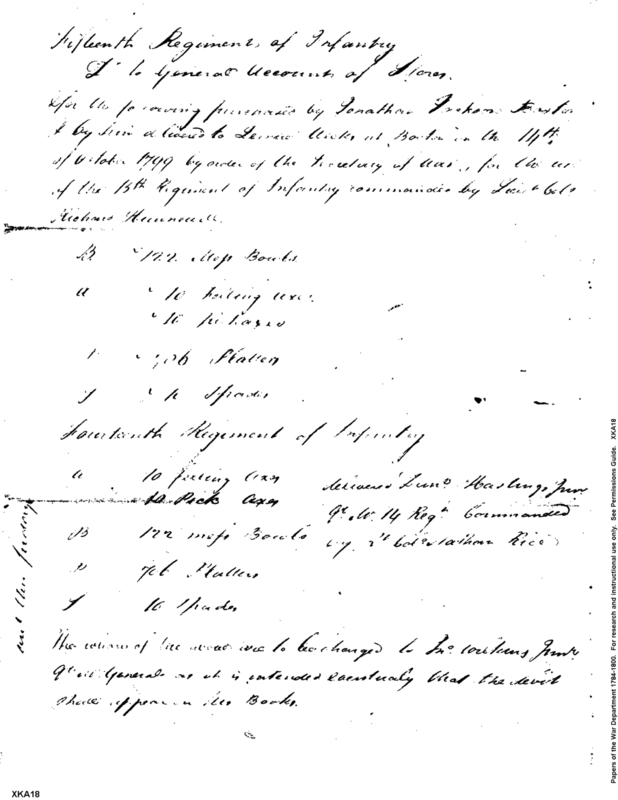 Fifteenth Regiment of Infantry
Dr to General Accounts of Stores.
for the following purchases by Jonathan Jackson Boston
& by him delivered to at Boston in the 14th
of October 1799 by order of the Secretary of War, for the use
of the 15th Regiment of Infantry commanded by Lieut Colo
Richard Hunnewell.
B " 122 Mess Bowls
a " 10 felling axes
" 10 pickaxes
P " Platters
S " 10 Spades
Fourteenth Regiment of Infantry
a 10 felling axes
10 Pick axes
B 122 mess Bowls
P Platters
S 10 Spades
delivered Hastings Junr
Qr Mr 14 Regt Commanded
by Lt Colo Nathan Rice
The of the above are to be charged to Jno Wilkins Junr
Qr Mr General as it is intended eventually that the debit
shall appear in his Books.
XKA18
Papers of the War Department 1784-1800. For research and instructional use only. See Permissions Guide. XKA18